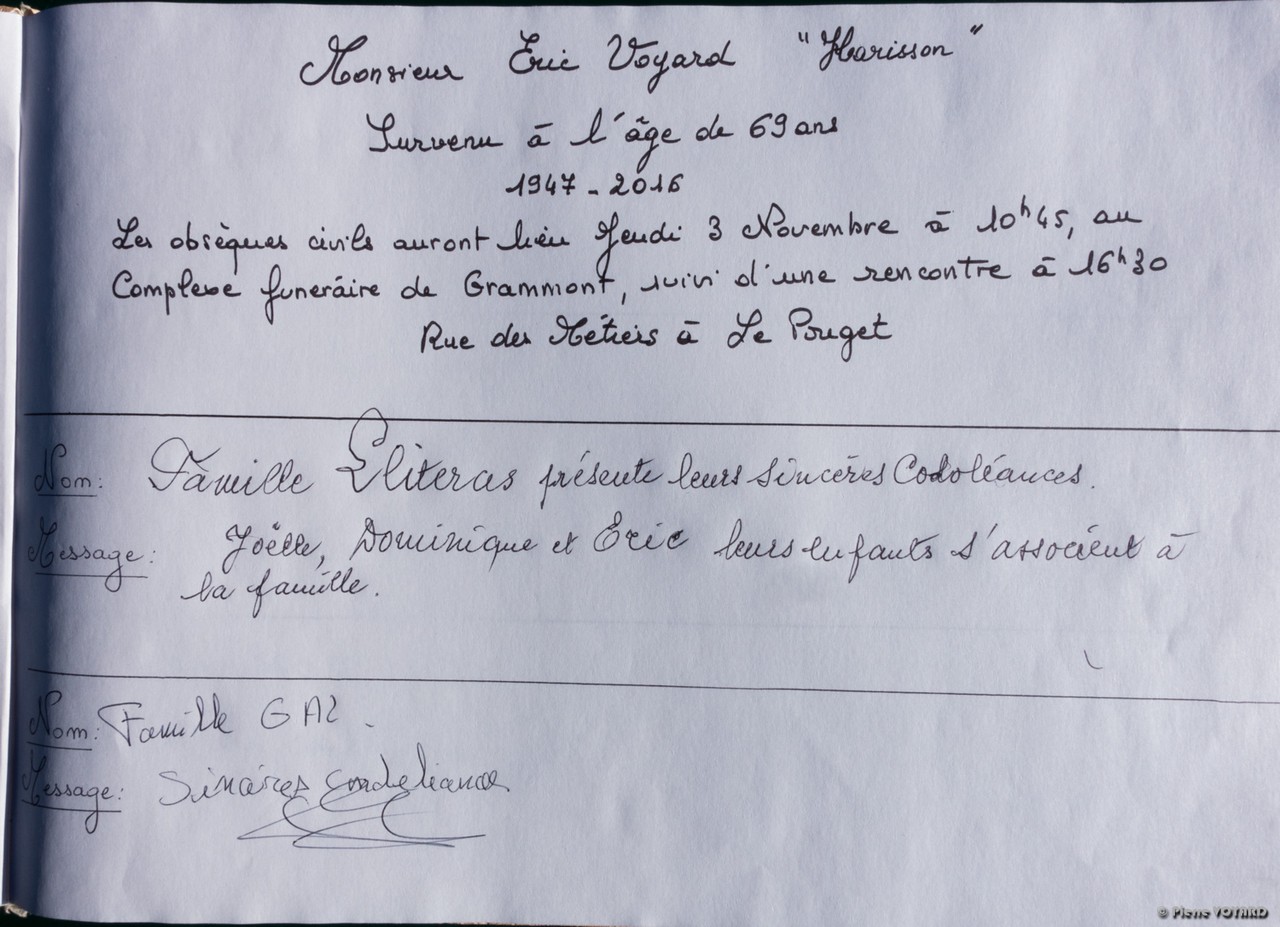 Monsieur Eric Voyard "Harisson"
Survenu à l'âge de 69 ans
1947 - 2016
Les obsèques civils auront lieu Jeudi 3 Novembre à 10h45, au
Complexe funéraire de Grammont, suivi d'une rencontre à 16h30
Rue des Métiers à Le Pouget
Nom: Famille Eliteras présente leurs sincères Codoléances.
Message: Joëlle, Dominique et Eric leurs enfants s'associent à
la famille.
Nom: Famille
Message: Sincères condoleiances
© Pierre VOYARD